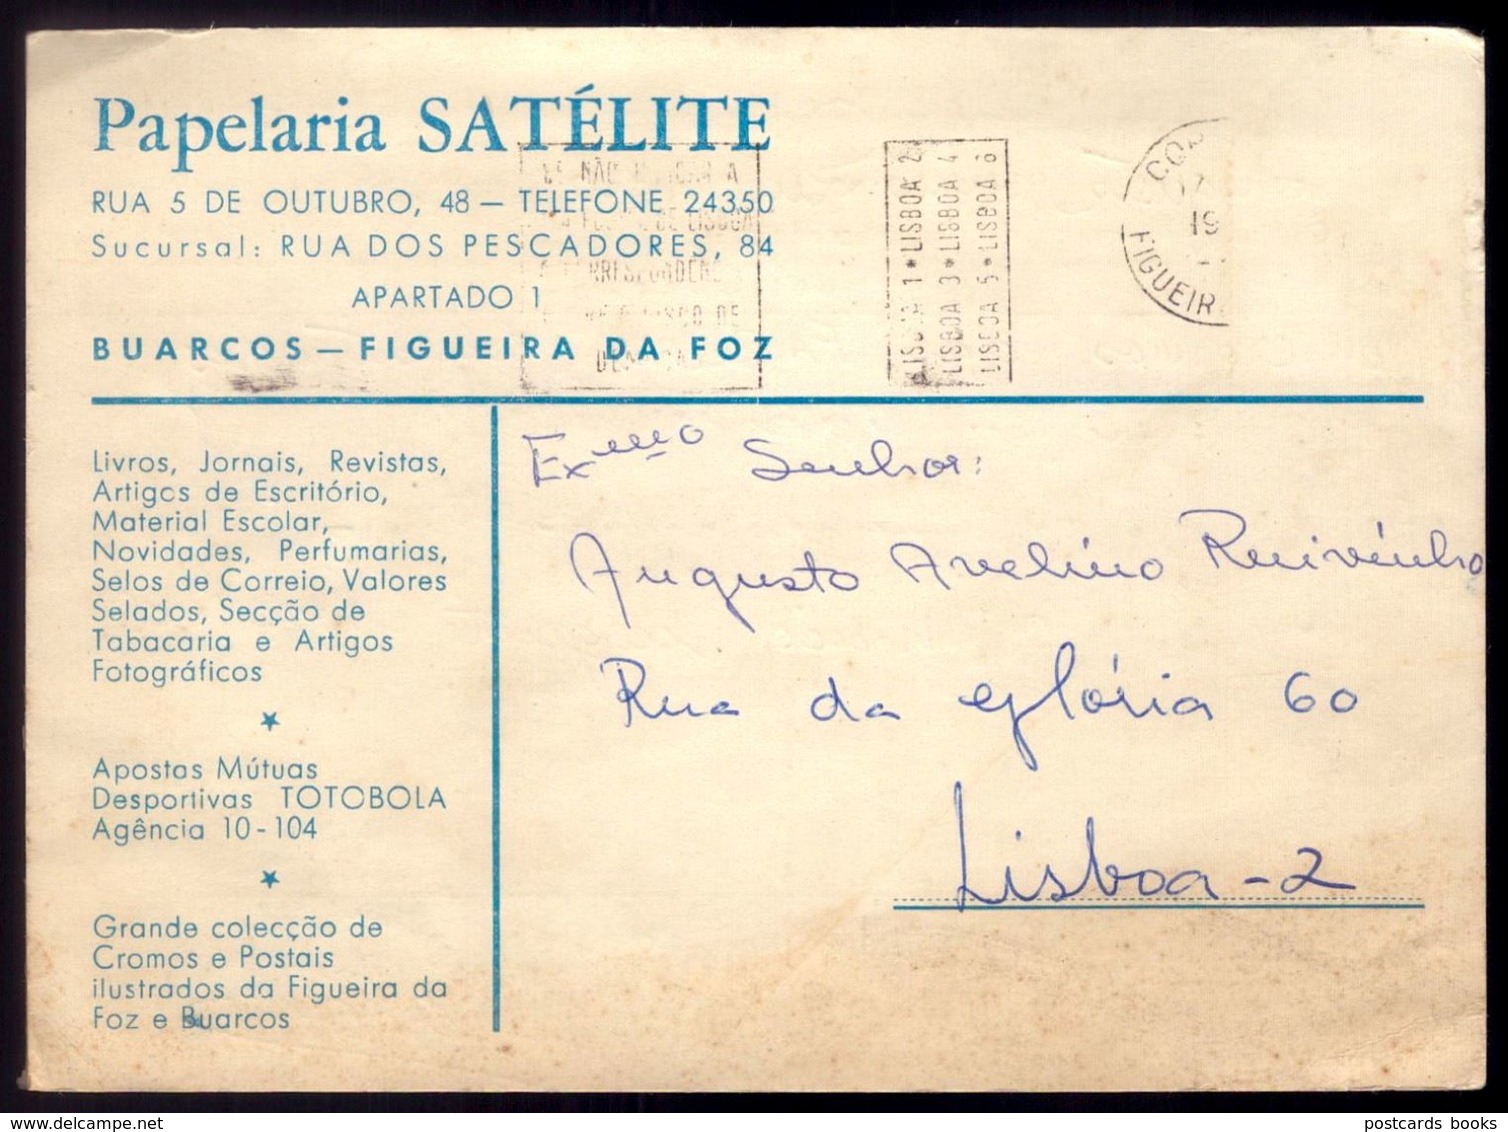 Papelaria SATÉLITE
RUA 5 DE OUTUBRO, 48 — TELEFONE 24350
Sucursal: RUA DOS PESCADORES, 84
APARTADO 1
BUARCOS — FIGUEIRA DA FOZ
NÃO
A
DE LISBOA
DE
LISBOA 1 * LISBOA 2
LISBOA 3 * LISBOA 4
LISBOA 5 * LISBOA 6
19
FIGUEIR
Livros, Jornais, Revistas,
Artigos de Escritório,
Material Escolar,
Novidades, Perfumarias,
Selos de Correio, Valores
Selados, Secção de
Tabacaria e Artigos
Fotográficos
Apostas Mútuas
Desportivas TOTOBOLA
Agência 10-104
Grande colecção de
Cromos e Postais
ilustrados da Figueira da
Foz e Buarcos
Exmo Senhor:
Augusto Avelino Ruivinho
Rua da Glória 60
Lisboa - 2
delcampe.net
postcards books